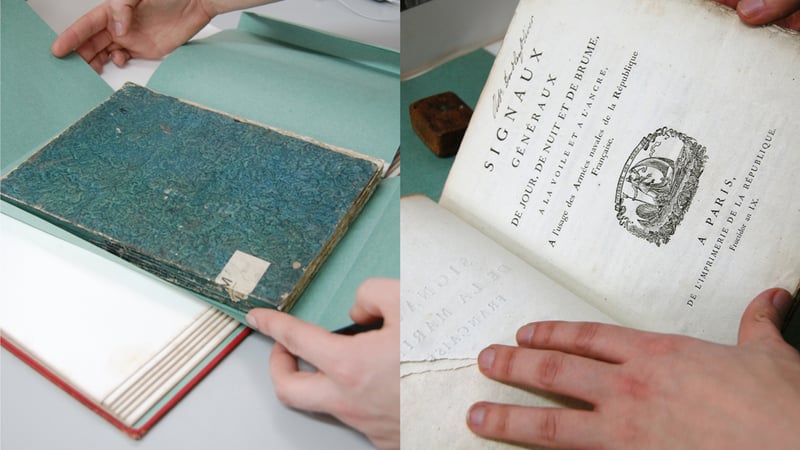 SIGNAUX
GÉNÉRAUX
DE JOUR, DE NUIT ET DE BRUME,
A LA VOILE ET A L'ANCRE,
A l'usage des Armées navales de la République
Française.
A PARIS,
DE L'IMPRIMERIE DE LA RÉPUBLIQUE.
Fructidor an IX.